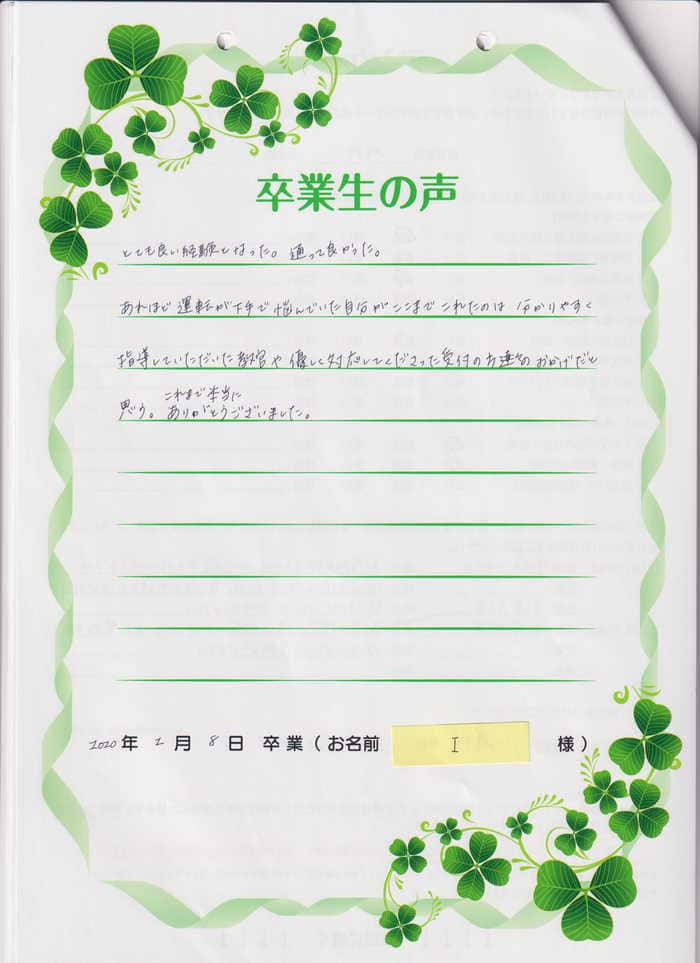 卒業生の声
とても良い経験となった。通って良かった。
あれほど運転が下手で悩んでいた自分がここまでこれたのは分かりやすく
指導していただいた教官や優しく対応してくださった受付の方達のおかげだと
これまで本当に
思う。ありがとうございました。
2020年 2月 8日 卒業（お名前 I 様）